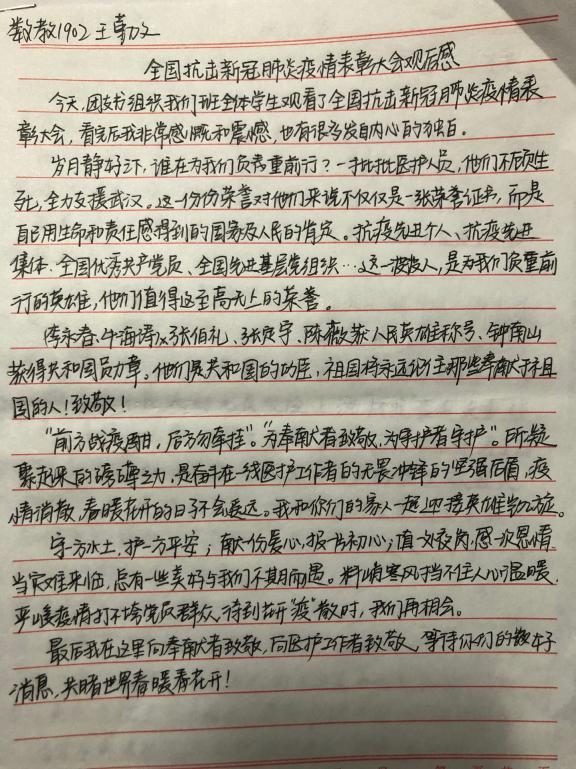 数教1902 王
全国抗击新冠肺炎疫情表彰大会观后感
今天,团支书组织我们班全体学生观看了全国抗击新冠肺炎疫情表
彰大会,看完后我非常感慨和震憾,也有很多发自内心的独白。
岁月静好下,谁在为我们负重前行?一批批医护人员,他们不顾生
死,全力支援武汉。这一份份荣誉对他们来说不仅仅是一张荣誉证书,而是
自己用生命和责任感得到的国家及人民的肯定。抗疫先进个人、抗疫先进
集体、全国优秀共产党员、全国先进基层党组织…这一波波人,是为我们负重前
行的英雄,他们值得这至高无上的荣誉。
张伯礼、张定宇、陈薇获人民英雄称号、钟南山
获得共和国勋章。他们是共和国的功臣,祖国将永远记住那些奉献于祖
国的人!致敬!
“前方战疫酣,后方勿牵挂”。“为奉献者致敬,为守护者守护”。所凝
聚起来的磅礴之力,是奋斗在一线医护工作者的无畏冲锋的坚强后盾,疫
情消散,春暖花开的日子不会遥远。我和你们的家人一起迎接英雄凯旋。
守一方水土,护一方平安;献一份爱心,报一片初心;值一次夜岗,感一次恩情
当灾难来临,总有一些美好与我们不期而遇。料峭寒风挡不住人心温暖,
严峻疫情打不垮党员群众,待到花开“疫”散时,我们再相会。
最后我在这里向奉献者致敬,向医护工作者致敬,等待你们的好
消息,共睹世界春暖春花开!